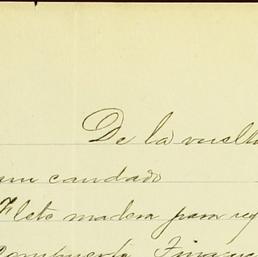 De la vuelta
un candado
Flete madera para
compuerta